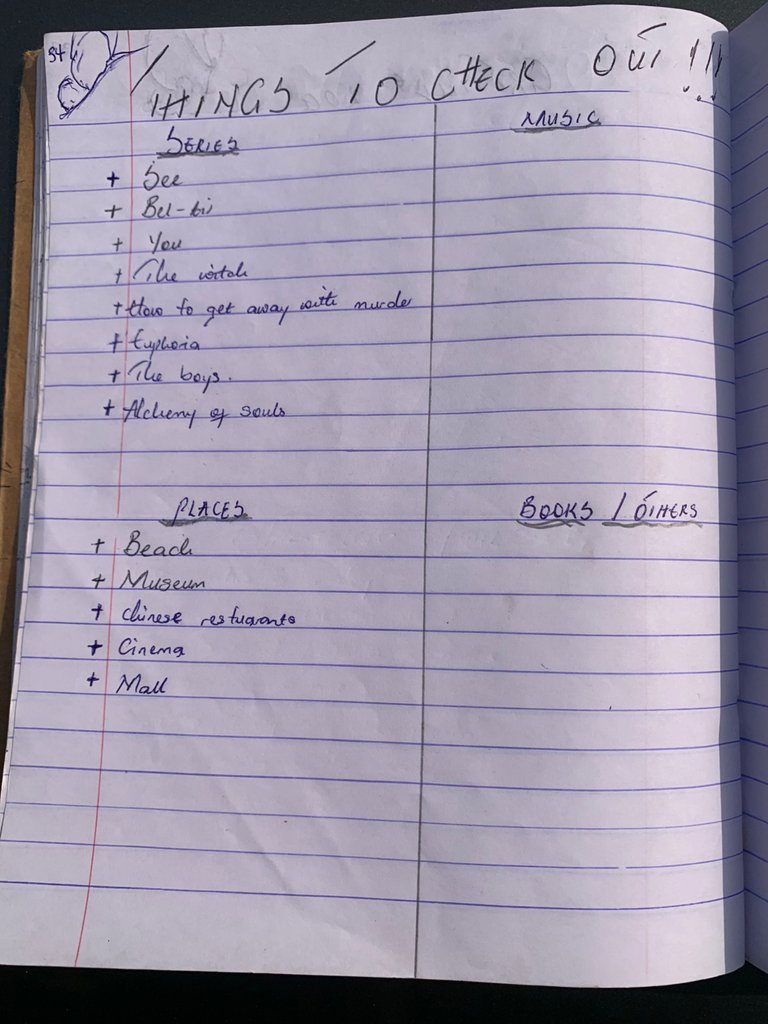 34
THINGS TO CHECK OUT !!!
SERIES
+ See
+ Bel-Air
+ You
+ The witch
+ How to get away with murder
+ Euphoria
+ The boys.
+ Alchemy of souls
MUSIC
PLACES
+ Beach
+ Museum
+ chinese restuarants
+ Cinema
+ Mall
BOOKS / OTHERS